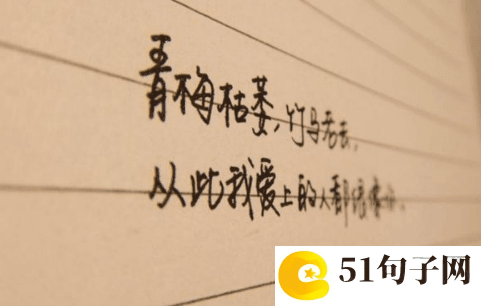 青梅枯萎,竹马老去,
从此我爱上的人都很像你.
51句子网